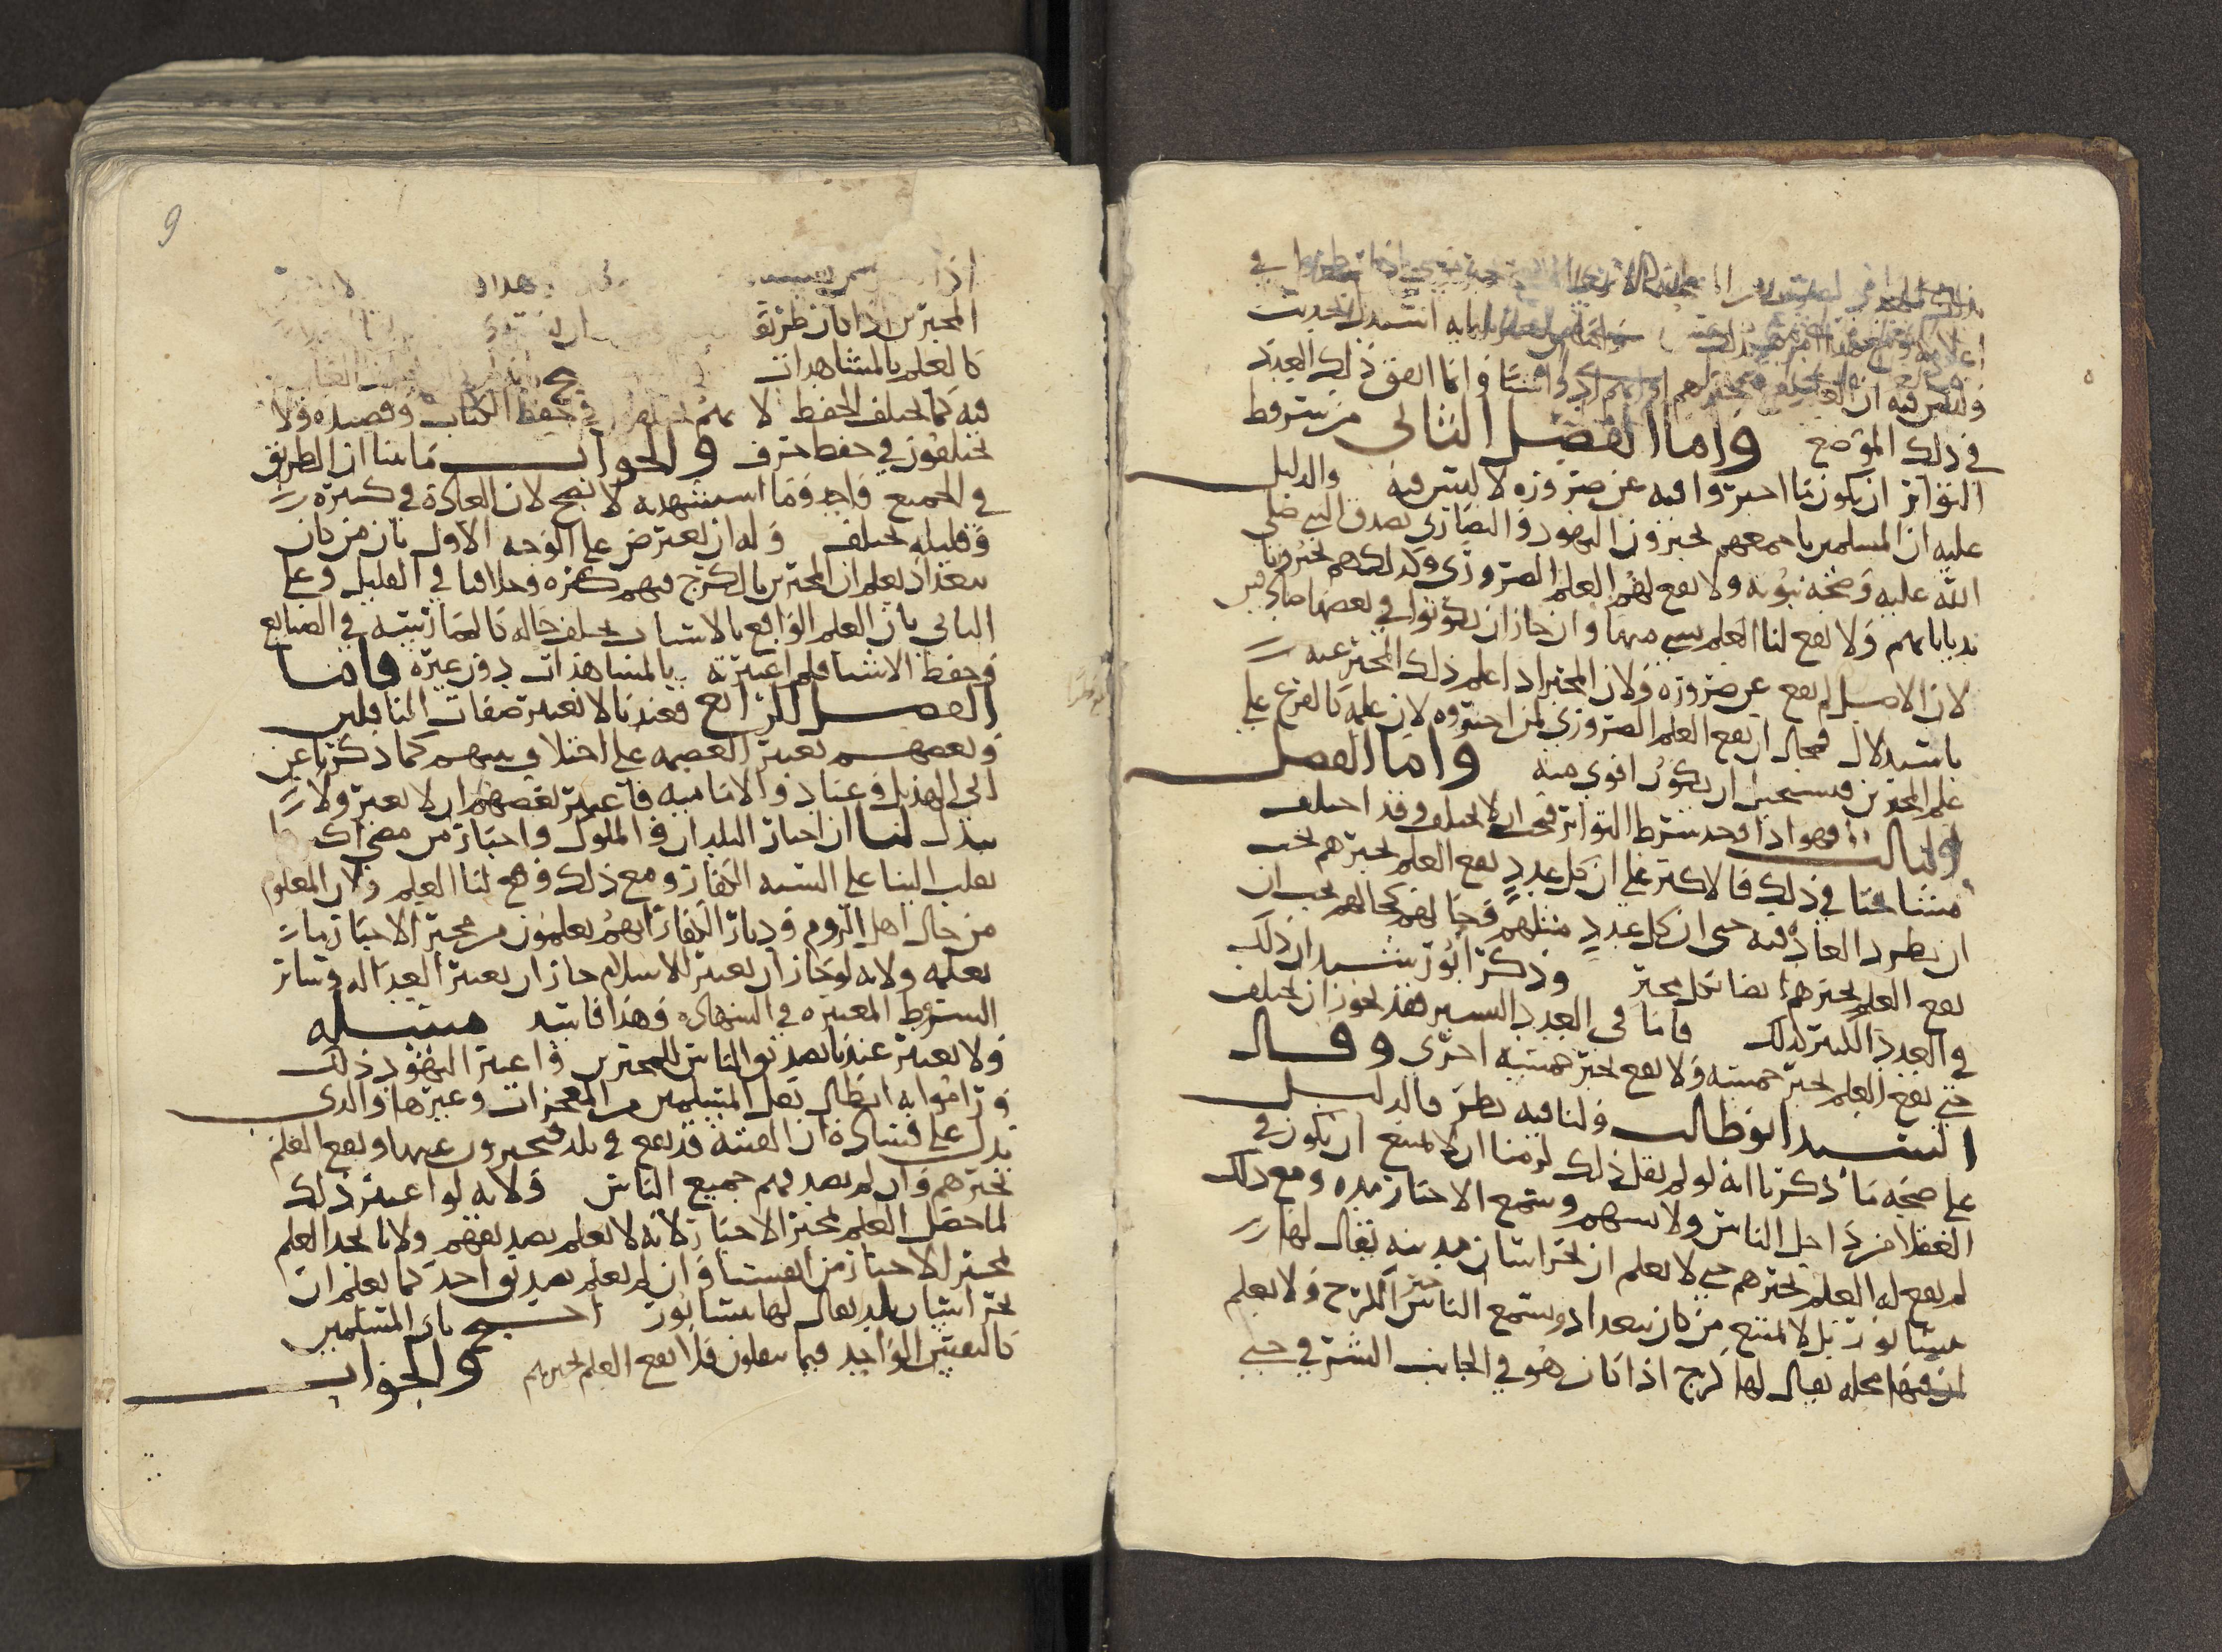 في ذلك الموضع واما الفصل الثاني من شروط
التواتر ان يكون ما اخبروا فيه عن ضرورة لا لبس فيه والدليل
عليه ان المسلمين باجمعهم يخبرون اليهود والنصارى بصدق النبي صلى
الله عليه وصحة نبوته ولا يقع لهم العلم الضروري وكذلك هم يخبرونا
بدياناتهم ولا يقع لنا العلم بشي منها وان جاز ان يكونوا في بعضها صادقين
لان الاصل لم يقع عن ضرورة ولان المخبر اذا علم ذلك المخبر عنه
باستدلال فمحال ان يقع العلم الضروري لمن اخبروه لان علمه كالفرع على
علم المخبرين فيستحيل ان يكون اقوى منه واما الفصل
الثالث فهو اذا وجد شرط التواتر فيجب ان لا يختلف وقد اختلف
مشايخنا في ذلك فالاكثر على ان كل عدد يقع العلم بخبرهم يجب
ان يطرد العادة فيه حتى ان كل عدد مثلهم وحالهم كحالهم يجب ان
يقع العلم بخبرهم ايضا بكل مخبر وذكر ابو رشيد ان ذلك
في العدد الكثير كذلك فاما في العدد اليسير فقد يجوز ان يختلف
حتى يقع العلم بخبر خمسة ولا يقع بخبر خمسة اخرى وقال
السيد ابو طالب ولنا فيه نظر فالدليل
على صحة ما ذكرنا انه لو لم نقل ذلك لزمنا ان لا يمتنع ان يكون في
العقلا من داخل الناس ولابسهم وسمع الاخبار مدة ومع ذلك
لم يقع له العلم بخبرهم حتى لا يعلم ان بخراسان مدينة يقال لها
نيسابور بل لا يمتنع من كان ببغداد وسمع الناس خبر الكرخ ولا يعلم
ان فيها محلة يقال لها كرخ اذا كان هو في الجانب الشرقي حتى
9
المخبرين اذا كان طريق
كالعلم بالمشاهدات
فيه كما يختلف الحفظ لا في حفظ الكتاب وقصيدة ولا
يختلفون في حفظ حرف والجواب ما بينا ان الطريق
في الجميع واحد وما استشهد به لا يصح لان العادة في كثيره
وقليله يختلف وله ان يعترض على الوجه الاول بان من كان
ببغداد يعلم ان المخبرين بالكرخ فيهم كثرة وخلافنا في القليل وعلى
الثاني بان العلم الواقع بالاسباب يختلف حاله كالممارسة في الصنايع
وحفظ الاشيا فلم اعبرته بالمشاهدات دون غيره واما
الفصل الرابع فعندنا لا يعتبر صفات الناقلين
وبعضهم يعتبر العصمة على اختلاف بينهم كما ذكرنا عن
ابي الهذيل وعباد والامامية واعتبر بعضهم ان لا يعتبر ولا
يبدل لنا ان اخبار البلدان والملوك واخبار من مضى
نقلت الينا على السنة الكفار ومع ذلك وقع لنا العلم ولان المعلوم
من حال اهل الروم وديار الكفار انهم يعلمون من مخبر الاخبار ما
نعلمه ولانه لو جاز ان يعتبر الاسلام جاز ان يعتبر العدالة وسائر
الشروط المعتبرة في الشهادة وهذا فاسد مسئلة
ولا يعتبر عندنا تصديق الناس للمخبرين واعتبر اليهود ذلك
وراموا به ابطال نقل المسلمين من المعجزات وغيرها والذي
يدل على فساده ان الفتنة قد تقع في بلد فيخبرون عنها ويقع العلم
بخبرهم وان لم يصدقهم جميع الناس ولانه لو اعتبر ذلك
لما حصل العلم بمخبر الاخبار لانه لا يعلم تصديقهم ولانا نجد العلم
بمخبر الاخبار من انفسنا وان لم نعلم تصديق احد كما نعلم ان
بخراسان بلد يقال لها نيسابور احتج بان المسلمين
كالنفس الواحد فيما ينقلون فلا يقع العلم بخبرهم والجواب